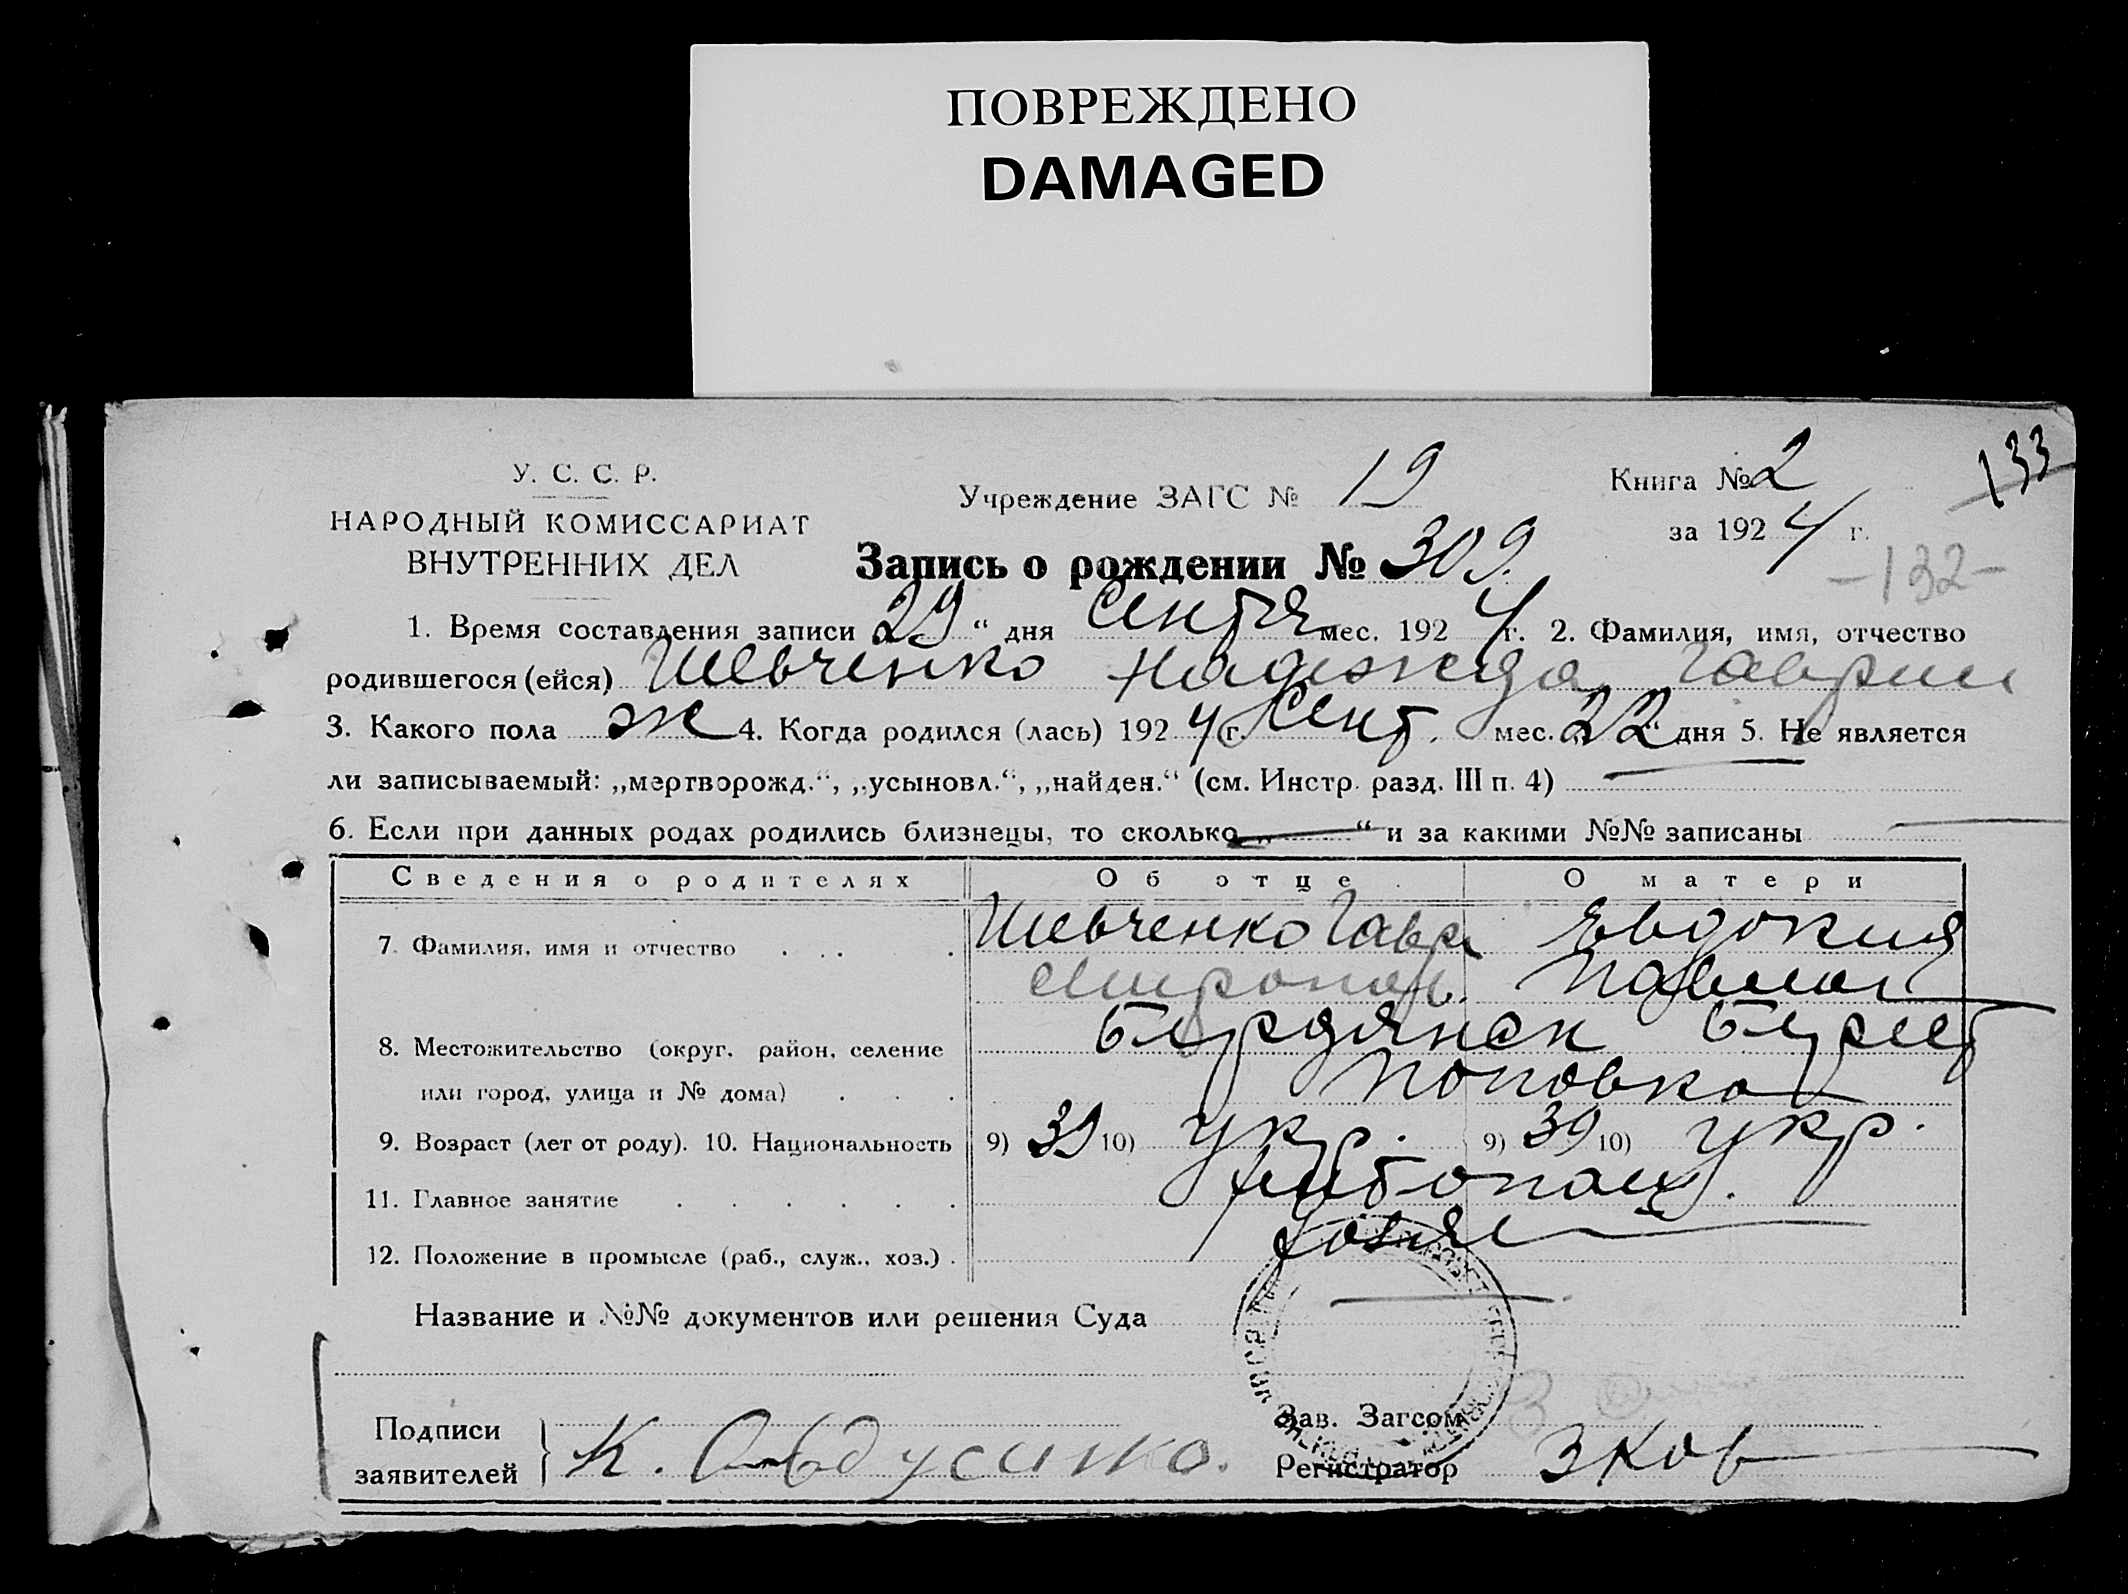 ПОВРЕЖДЕНО
DAMAGED
133
У. С. С. Р.
НАРОДНЫЙ КОМИССАРИАТ
ВНУТРЕННИХ ДЕЛ
Учреждение ЗАГС № 19
Книга № 2
за 1924 г.
-132-
Запись о рождении № 309.
1. Время составления записи 29 “ дня Сентя мес. 1924 г. 2. Фамилия, имя, отчество
родившегося (ейся) Шевченко Надежда Гаврил
3. Какого пола ж 4. Когда родился (лась) 1924 г. Сент. мес. „22“ дня 5. Не является
ли записываемый: „мертворожд.“, „усыновл.“, „найден.“ (см. Инстр. разд. III п. 4) —
6. Если при данных родах родились близнецы, то сколько „—“ и за какими №№ записаны —
Сведения о родителях Об отце О матери
7. Фамилия, имя и отчество Шевченко Гавр Евдокия
Павлов
8. Местожительство (округ, район, селение Бердянск
или город, улица и № дома) Поповка
9. Возраст (лет от роду). 10. Национальность 9) 39 10) укр. 9) 39 10) укр.
11. Главное занятие хлебопаш.
12. Положение в промысле (раб., служ., хоз.) хозяе
Название и №№ документов или решения Суда —
Подписи
заявителей
К.
Зав. Загсом
Регистратор